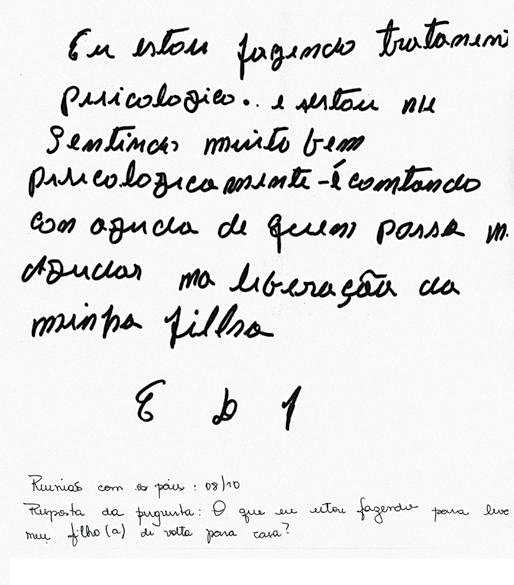 Eu estou fazendo tratamen
psicologico.. e estou me
Sentindo muito bem
psicologicamente - é comtando
com aguda de quem possa m
Agudar na liberação da
minha filha
E D 1
Reunião com os pais : 08/10
Resposta da pergunta: O que eu estou fazendo para leva
meu filho(a) de volta para casa?